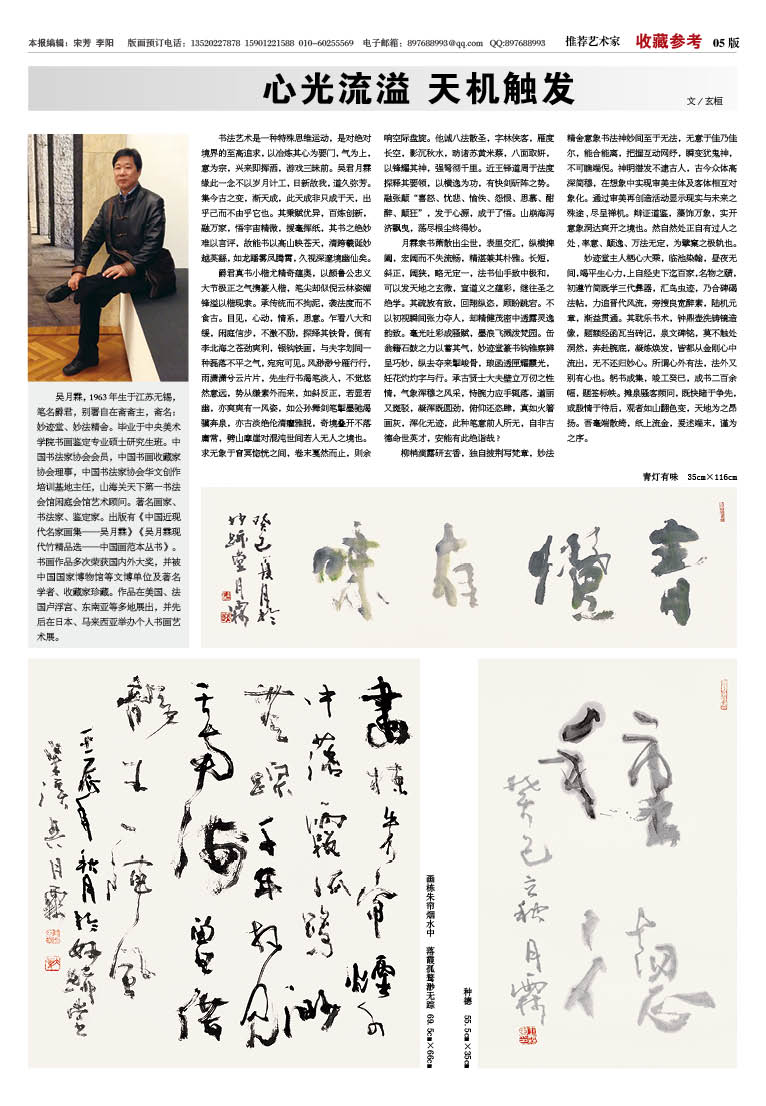 本报编辑：宋芳 李阳 版面预订电话：13520227878 15901221588 010-60255569 电子邮箱：897688993@qq.com QQ:897688993 推荐艺术家 收藏参考 05 版
心光流溢 天机触发
文／玄桓
吴月霖，1963 年生于江苏无锡，
笔名爵君，别署自在斋斋主，斋名：
妙迹堂、妙法精舍。毕业于中央美术
学院书画鉴定专业硕士研究生班。中
国书法家协会会员，中国书画收藏家
协会理事，中国书法家协会华文创作
培训基地主任，山海关天下第一书法
会馆闲庭会馆艺术顾问。著名画家、
书法家、鉴定家。出版有《中国近现
代名家画集——吴月霖》《吴月霖现
代竹精品选——中国画范本丛书》。
书画作品多次荣获国内外大奖，并被
中国国家博物馆等文博单位及著名
学者、收藏家珍藏。作品在美国、法
国卢浮宫、东南亚等多地展出，并先
后在日本、马来西亚举办个人书画艺
术展。
书法艺术是一种特殊思维运动，是对绝对
境界的至高追求，以冶炼其心为要门，气为上，
意为宗，兴来即挥洒，游戏三昧前。吴君月霖
缘此一念不以岁月计工，日新故我，道久弥芳。
集今古之变，渐天成，此天成非只成于天，出
乎己而不由乎它也。其秉赋优异，百炼创新，
融万家，悟宇宙精微，援毫挥纸，其书之绝妙
难以言评，故能书以高山映苍天，清跨羲诞妙
越英骚，如龙踊雾凤腾霄，久视深邃境幽仙矣。
爵君真书小楷尤精奇蕴奥，以颜鲁公忠义
大节极正之气携篆入楷，笔尖却似倪云林姿媚
锋溢以楷现隶。承传统而不拘泥，袭法度而不
食古。目见，心动，情系，思意。乍看八大和
缓，闲庭信步，不激不励，探绎其铁骨，倒有
李北海之苍劲爽利，银钩铁画，与夫字划间一
种磊落不平之气，宛宛可见。风渺渺兮雁行行，
雨潇潇兮云片片，先生行书奭笔淡入，不觉悠
然意远，势从缣素外而来，如斜反正，若显若
幽，亦爽爽有一风姿，如公孙舞剑笔掣墨驰渴
骥奔泉，亦古淡绝伦清癯雅脱，奇境叠开不落
庸常，劈山摩崖对混沌世间若入无人之境也。
求无象于窅冥惚恍之间，卷末戛然而止，则余
响空际盘旋。他诫八法散圣，字林侠客，雁度
长空，影沉秋水，昉诸苏黄米蔡，八面取妍，
以锋耀其神，强弩彻千里。近王铎道周于法度
探绎其要领，以横逸为功，有快剑斫阵之势。
融张颠“喜怒、忧悲、愉佚、怨恨、思慕、酣
醉、颠狂”，发于心源，成于了悟。山崩海泻
济飘曳，荡尽根尘终得妙。
月霖隶书萧散出尘世，表里交汇，纵横捭
阖，宏阔而不失流畅，精湛兼其朴雅。长短，
斜正，阔狭，略无定一，法书仙手致中极和，
可以发天地之玄微，宣道义之蕴彩，继往圣之
绝学。其疏放有致，回翔纵恣，顾盼跳宕。不
以初视瞬间张力夺人，却精健茂密中透露灵逸
韵致。毫光吐彩成骚赋，墨痕飞溅泼梵园。缶
翁籀石鼓之力以蓄其气，妙迹堂篆书钩锥察骈
呈巧妙，纵去夺来掣峻骨，琅函透匣耀霞光，
妊花灼灼字与行。承古贤士大夫壁立万仞之性
情，气象浑穆之风采，恃腕力应手辄落，遒丽
又斑驳，凝浑既圆劲，俯仰还恣肆，真如火箸
画灰，浑化无迹，此种笔意前人所无，自非古
德命世英才，安能有此绝诣哉？
柳梢滴露研玄香，独自披荆写梵章，妙法
精舍意象书法神妙间至于无法，无意于佳乃佳
尔，能合能离，把握互动网纾，瞬变犹鬼神，
不可瞻端倪。神明潜发不逮古人，古今众体高
深简穆，在想象中实现审美主体及客体相互对
象化。通过审美再创造活动显示现实与未来之
殊途，尽呈禅机。辩证道鉴，藻饰万象，实开
意象洞达爽开之境也。然自然处正自有过人之
处，率意、颠逸、万法无定，为擘窠之极轨也。
妙迹堂主人栖心大乘，临池染翰，昼夜无
间，竭平生心力，上自经史下迄百家，名物之赜，
初遵竹简既学三代彝器，汇鸟虫迹，乃合碑碣
法帖，力追晋代风流，旁搜良宽醉素，陆机元
章，渐益贯通。其耽乐书术，钟鼎壶洗砖镜造
像，题额经函瓦当砖记，泉文碑铭，莫不触处
洞然，奔赴腕底，凝炼焕发，皆都从金刚心中
流出，无不还归妙心。所谓心外有法，法外又
别有心也。躬书成集，竣工癸巳，成书二百余
幅，题签标帙。摊泉骚客频问，既快睹于争先，
或殷情于待后，观者如山翻色变，天地为之昂
扬。吾毫端散绮，纸上流金，爰述端末，谨为
之序。
青灯有味 35cm×116cm
癸巳夏月於
妙迹堂月霖
画栋朱帘烟水中 落霞孤鹜渺无踪 69.5cm×66cm
种德 55.5cm×35cm
癸巳立秋月霖